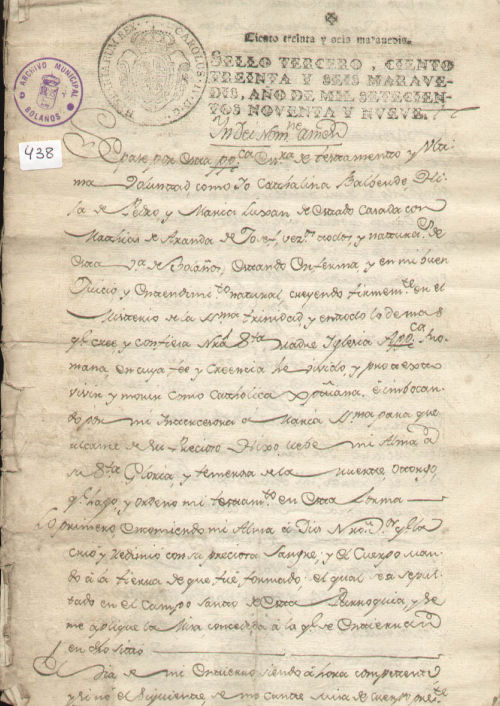 Ciento treinta y seis maravedis.
SELLO TERCERO, CIENTO
TREINTA Y SEIS MARAVE-
DIS, AÑO DE MIL SETECIEN-
TOS NOVENTA Y NUEVE.
ARCHIVO MUNICIPAL
BOLAÑOS
438
CAROLUS IV D. G.
HISPANIARUM REX
Yn Dei Nomine Amen
Sepase por esta ppca. Escra. de testamento y Ulti-
ma Voluntad, como Yo Catthalina
de Pedro y Maria de estado Casada con
Mathias de Aranda de Josef, vezs. todos y naturas. de
esta Va. de Bolaños, Estando Enferma, y en mi buen
Juicio y Entendimto. natural creyendo firmemte. en el
Misterio de la Sma. trinidad, y en todo lo demas
qe. cree y confiesa Nra. Sta. Madre Yglesia Appca. Ro-
mana, en cuya fee y Creencia he vivido y protexto
vivir y morir como Catholica Xptiana, e imbocan-
do por mi Intercesora a Maria Sma. para que
alcanze de su Precioso Hixo lleve mi Alma a
su Sta. Gloria, y temerosa de la muerte, otorgo,
qe. hago y ordeno mi testamto. en esta forma
Lo primero Encomiendo mi Alma a Dios Nro. Sr. qe. la
crio y redimio con su preciosa Sangre, y el Cuerpo man-
do a la tierra de que fue formado; el qual sea sepul-
tado en el Campo Santo de esta Parroquia, y se
me aplique la Misa concedida a la qe. se Entierran
en dho sitio
El Dia de mi Entierro siendo a hora competente
y si no el Siguiente, se me cante Misa de Cuerpo preste.